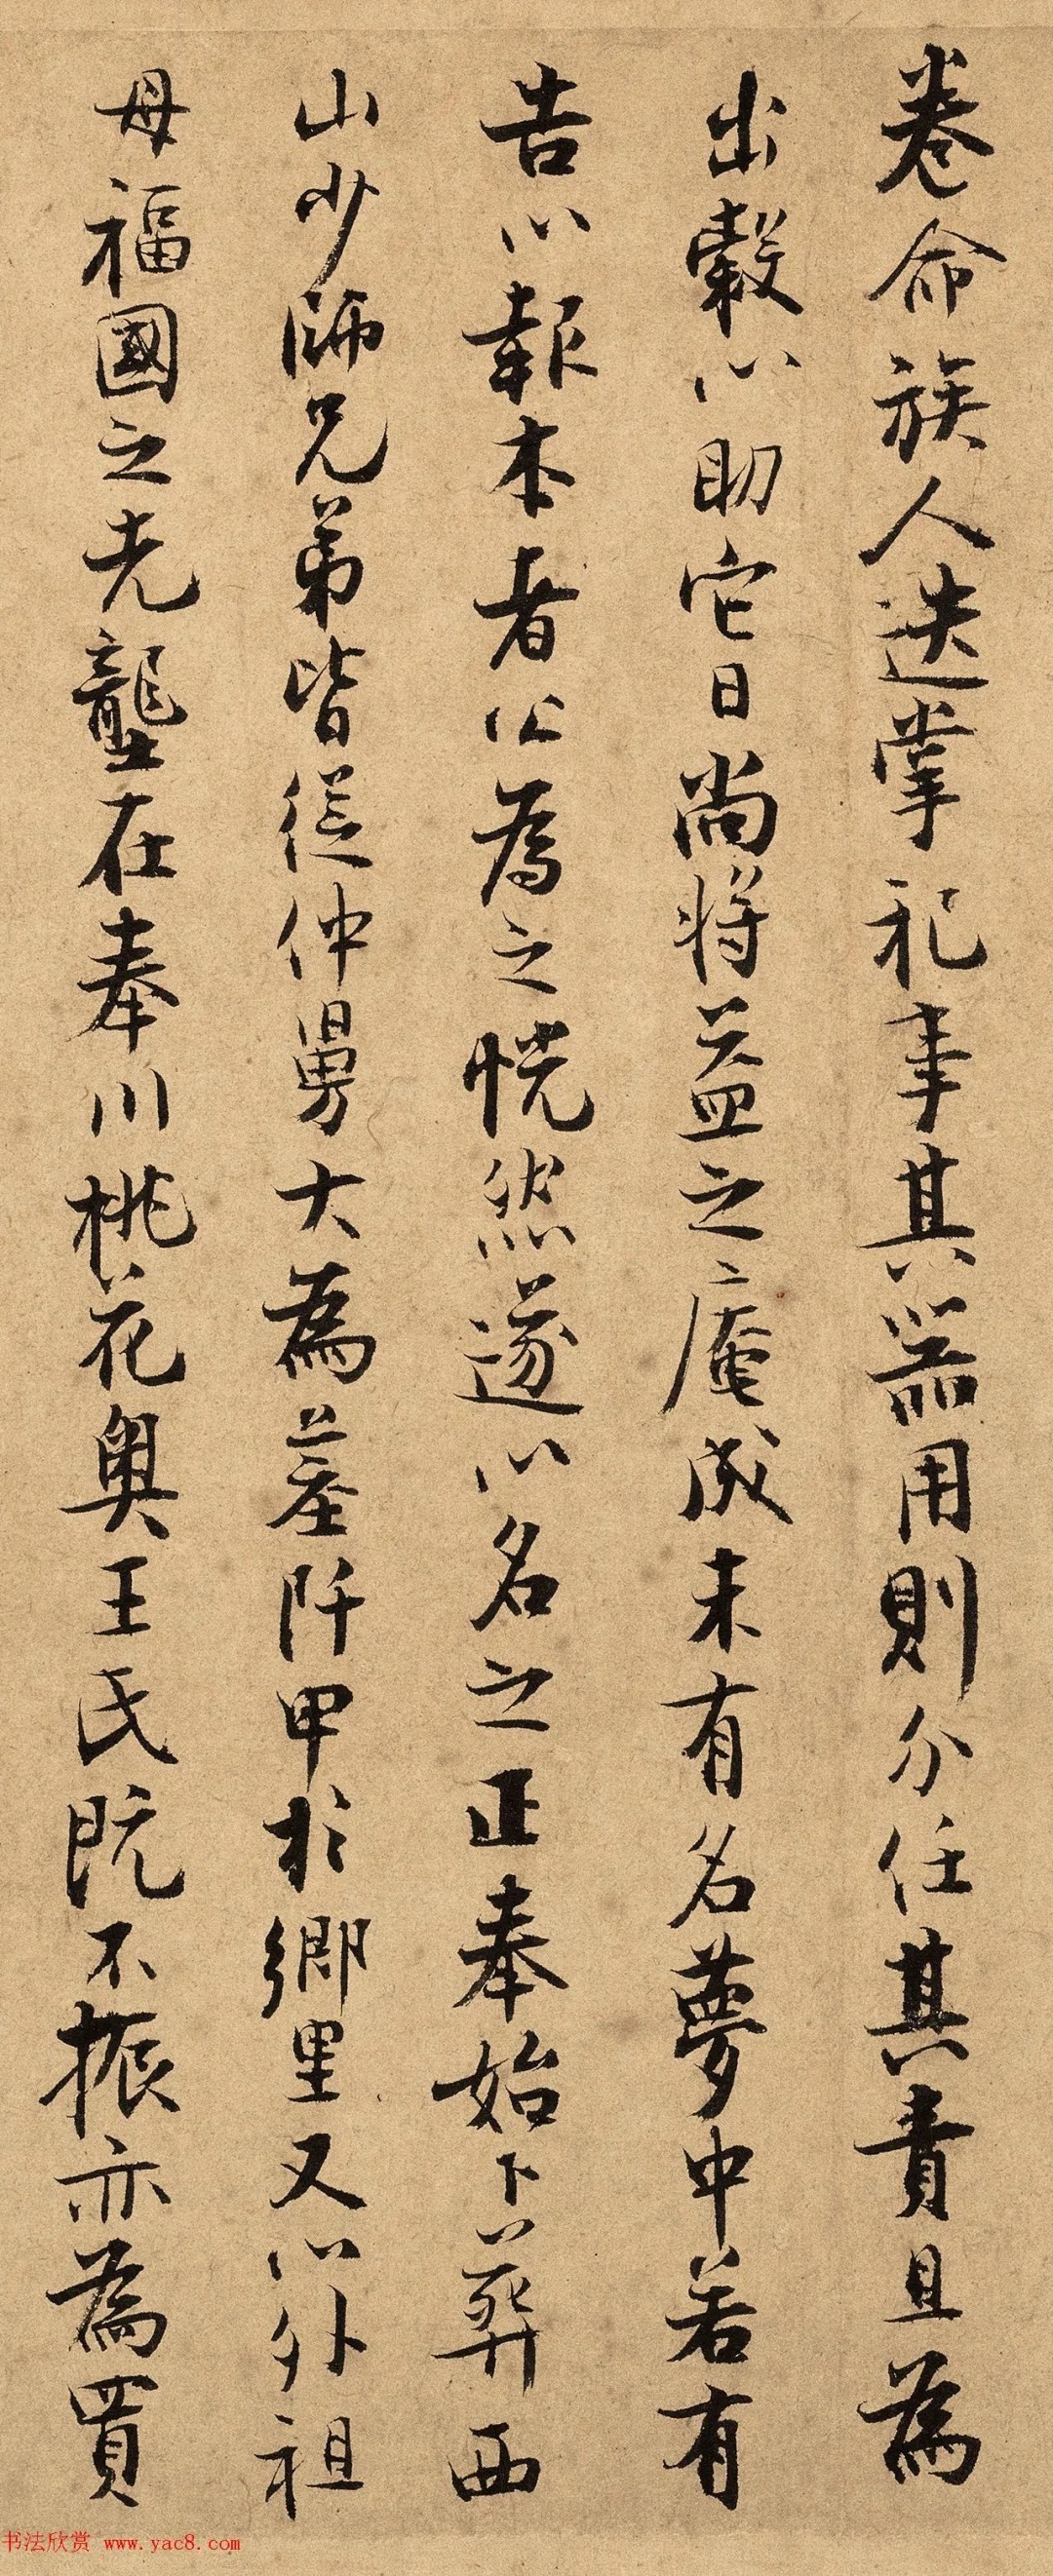 卷命族人迭掌祀事其器用則分任其責且為
出穀以助它日尚將益之庵成未有名夢中若有
告以報本者公為之恍然遂以名之正奉始卜葬西
山少師兄弟皆從仲舅大為墓阡甲於鄉里又以外祖
母福國之先壟在奉川桃花奧王氏既不振亦為買
书法欣赏 www.yac8.com